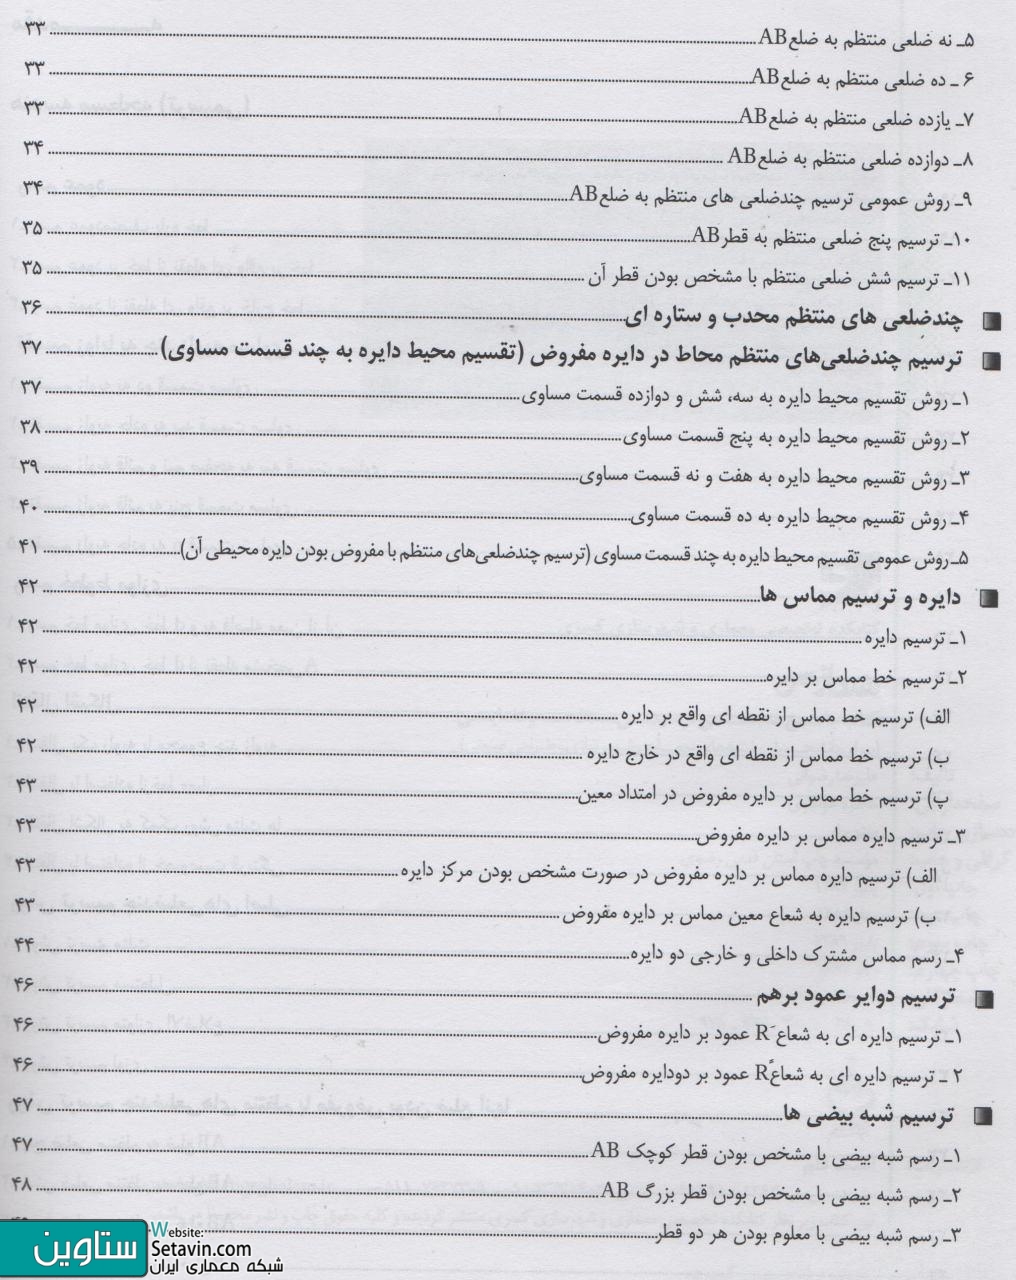 ۵ـ نه ضلعی منتظم به ضلعAB ۳۳
۶ ـ ده ضلعی منتظم به ضلعAB ۳۳
۷ـ یازده ضلعی منتظم به ضلعAB ۳۳
۸ـ دوازده ضلعی منتظم به ضلعAB ۳۴
۹ـ روش عمومی ترسیم چندضلعی های منتظم به ضلعAB ۳۴
۱۰ـ ترسیم پنج ضلعی منتظم به قطرAB ۳۵
۱۱ـ ترسیم شش ضلعی منتظم با مشخص بودن قطر آن ۳۵
چندضلعی های منتظم محدب و ستاره ای ۳۶
ترسیم چندضلعی‌های منتظم محاط در دایره مفروض (تقسیم محیط دایره به چند قسمت مساوی) ۳۷
۱ـ روش تقسیم محیط دایره به سه، شش و دوازده قسمت مساوی ۳۷
۲ـ روش تقسیم محیط دایره به پنج قسمت مساوی ۳۸
۳ـ روش تقسیم محیط دایره به هفت و نه قسمت مساوی ۳۹
۴ـ روش تقسیم محیط دایره به ده قسمت مساوی ۴۰
۵ـ روش عمومی تقسیم محیط دایره به چند قسمت مساوی (ترسیم چندضلعی‌های منتظم با مفروض بودن دایره محیطی آن) ۴۱
دایره و ترسیم مماس ها ۴۲
۱ـ ترسیم دایره ۴۲
۲ـ ترسیم خط مماس بر دایره ۴۲
الف) ترسیم خط مماس از نقطه ای واقع بر دایره ۴۲
ب) ترسیم خط مماس از نقطه ای واقع در خارج دایره ۴۲
پ) ترسیم خط مماس بر دایره مفروض در امتداد معین ۴۳
۳ـ ترسیم دایره مماس بر دایره مفروض ۴۳
الف) ترسیم دایره مماس بر دایره مفروض در صورت مشخص بودن مرکز دایره ۴۳
ب) ترسیم دایره به شعاع معین مماس بر دایره مفروض ۴۳
۴ـ رسم مماس مشترک داخلی و خارجی دو دایره ۴۴
ترسیم دوایر عمود برهم ۴۶
۱ـ ترسیم دایره ای به شعاع R´ عمود بر دایره مفروض ۴۶
۲ ـ ترسیم دایره ای به شعاع R˝ عمود بر دودایره مفروض ۴۶
ترسیم شبه بیضی ها ۴۷
۱ـ رسم شبه بیضی با مشخص بودن قطر کوچک AB ۴۷
۲ـ رسم شبه بیضی با مشخص بودن قطر بزرگ AB ۴۸
۳ـ رسم شبه بیضی با معلوم بودن هر دو قطر
ستاوین
Website:
Setavin.com
شبکه معماری ایران